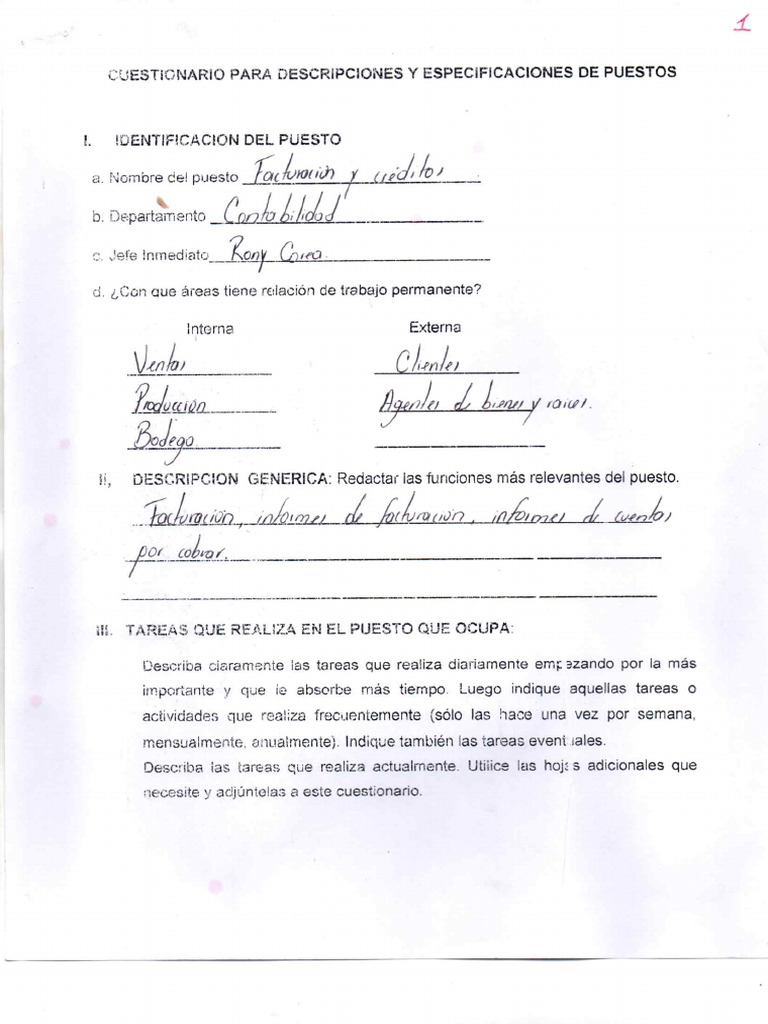 1
CUESTIONARIO PARA DESCRIPCIONES Y ESPECIFICACIONES DE PUESTOS
I. IDENTIFICACION DEL PUESTO
a. Nombre del puesto Facturación y créditos
b. Departamento Contabilidad
c. Jefe Inmediato Rony
d. ¿Con que áreas tiene relación de trabajo permanente?
Interna Externa
Ventas Clientes
Producción Agentes de bienes y raices.
Bodega
II, DESCRIPCION GENERICA: Redactar las funciones más relevantes del puesto.
Facturación, informes de facturación, informes de cuentas
por cobrar.
III. TAREAS QUE REALIZA EN EL PUESTO QUE OCUPA:
Describa claramente las tareas que realiza diariamente empezando por la más
importante y que le absorbe más tiempo. Luego indique aquellas tareas o
actividades que realiza frecuentemente (sólo las hace una vez por semana,
mensualmente, anualmente). Indique también las tareas eventuales.
Describa las tareas que realiza actualmente. Utilice las hojas adicionales que
necesite y adjúntelas a este cuestionario.